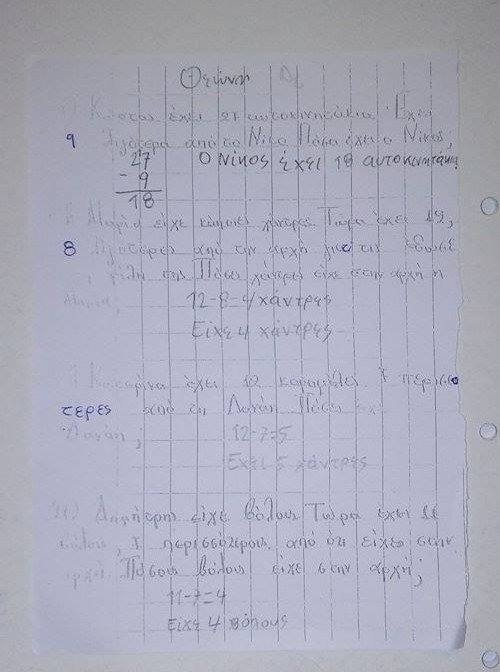 Κώστας έχει 27 αυτοκινητάκια. Έχει
9 λιγότερα από το Νίκο Πόσα έχει ο Νίκος;
27 Ο Νίκος έχει 18 αυτοκινητάκια
- 9
18
Μαρία είχε κάποιες χάντρες Τώρα έχει 12,
8 από την αρχή γιατί έδωσε
φίλη της Πόσες χάντρες είχε στην αρχή η
Μαρία;
12-8=4 χάντρες
Είχε 4 χάντρες
Κατερίνα έχει 12 καραμέλες 7 περισσο
τερες από τη Δανάη Πόσες
Δανάη;
12-7=5
Έχει 5 χάντρες
Δημήτρης είχε βόλους Τώρα έχει 11
βόλους, 7 περισσότερους από ότι είχε στην
αρχή Πόσους βόλους είχε στην αρχή;
11-7=4
Είχε 4 βόλους